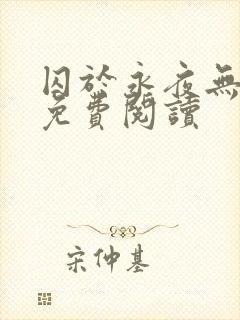 囚於永夜無
免費閱讀
宋仲基